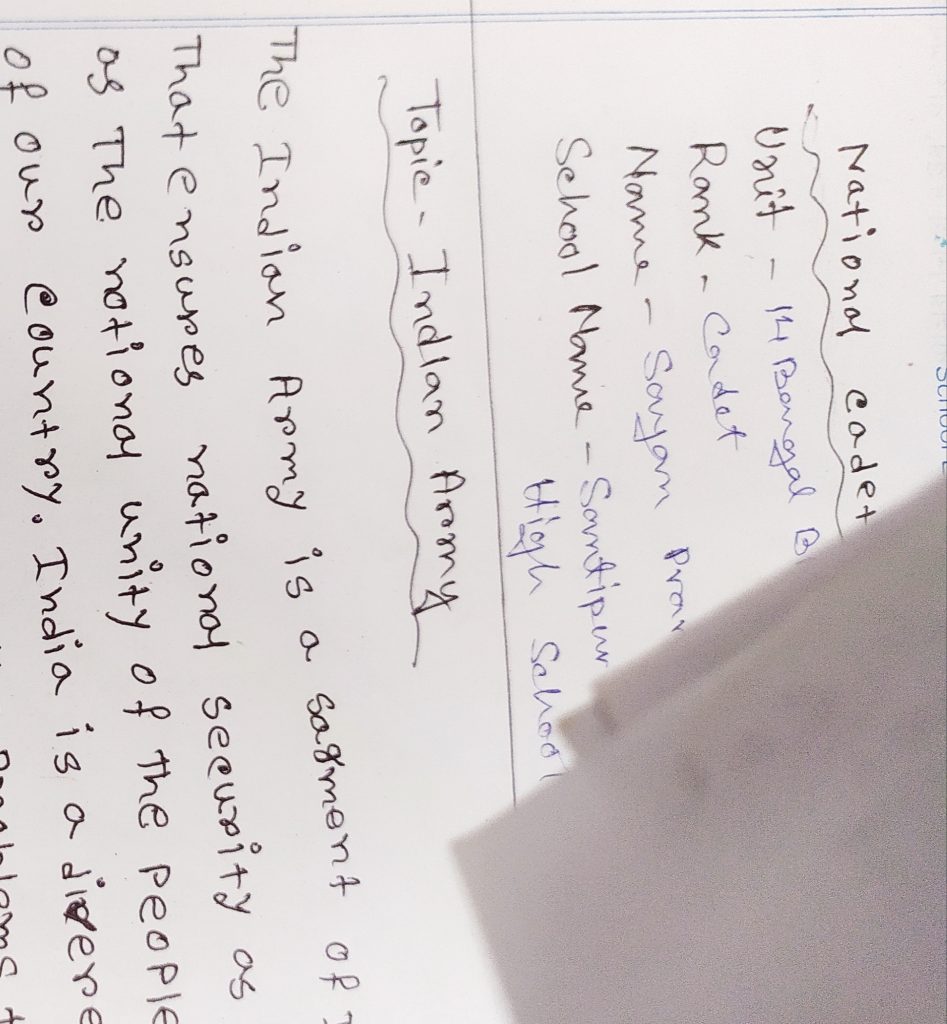 National cadet
Unit - 14 Bangal B
Rank - Cadet
Name - Sayan Pran
School Name - Santipur
High School
Topic - Indian Army
The Indian Army is a sagment of
That ensures national security as
as The national unity of the people
of our country. India is a divere